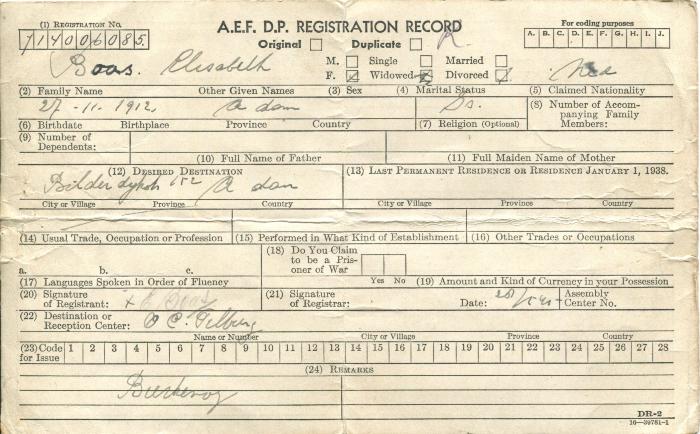 (1) REGISTRATION NO.
A.E.F. D.P. REGISTRATION RECORD
For coding purposes
714006085
Original Duplicate
A. B. C. D. E. F. G. H. I. J.
M. Single Married
Boas. Elisabeth
F. Widowed Divorced
Ned
(2) Family Name Other Given Names (3) Sex (4) Marital Status (5) Claimed Nationality
27-11.1912. A dam
(8) Number of Accompanying Family Members:
(6) Birthdate Birthplace Province Country (7) Religion (Optional)
(9) Number of Dependents:
(10) Full Name of Father (11) Full Maiden Name of Mother
(12) DESIRED DESTINATION (13) LAST PERMANENT RESIDENCE OR RESIDENCE JANUARY 1, 1938.
A dam
City or Village Province Country City or Village Province Country
(14) Usual Trade, Occupation or Profession (15) Performed in What Kind of Establishment (16) Other Trades or Occupations
(18) Do You Claim to be a Prisoner of War
a. b. c. Yes No
(17) Languages Spoken in Order of Fluency (19) Amount and Kind of Currency in your Possession
(20) Signature of Registrant: E Boas (21) Signature of Registrar: Date: Assembly Center No.
(22) Destination or Reception Center:
Name or Number City or Village Province Country
(23) Code for Issue 1 2 3 4 5 6 7 8 9 10 11 12 13 14 15 16 17 18 19 20 21 22 23 24 25 26 27 28
(24) REMARKS
DR-2
16—39781-1